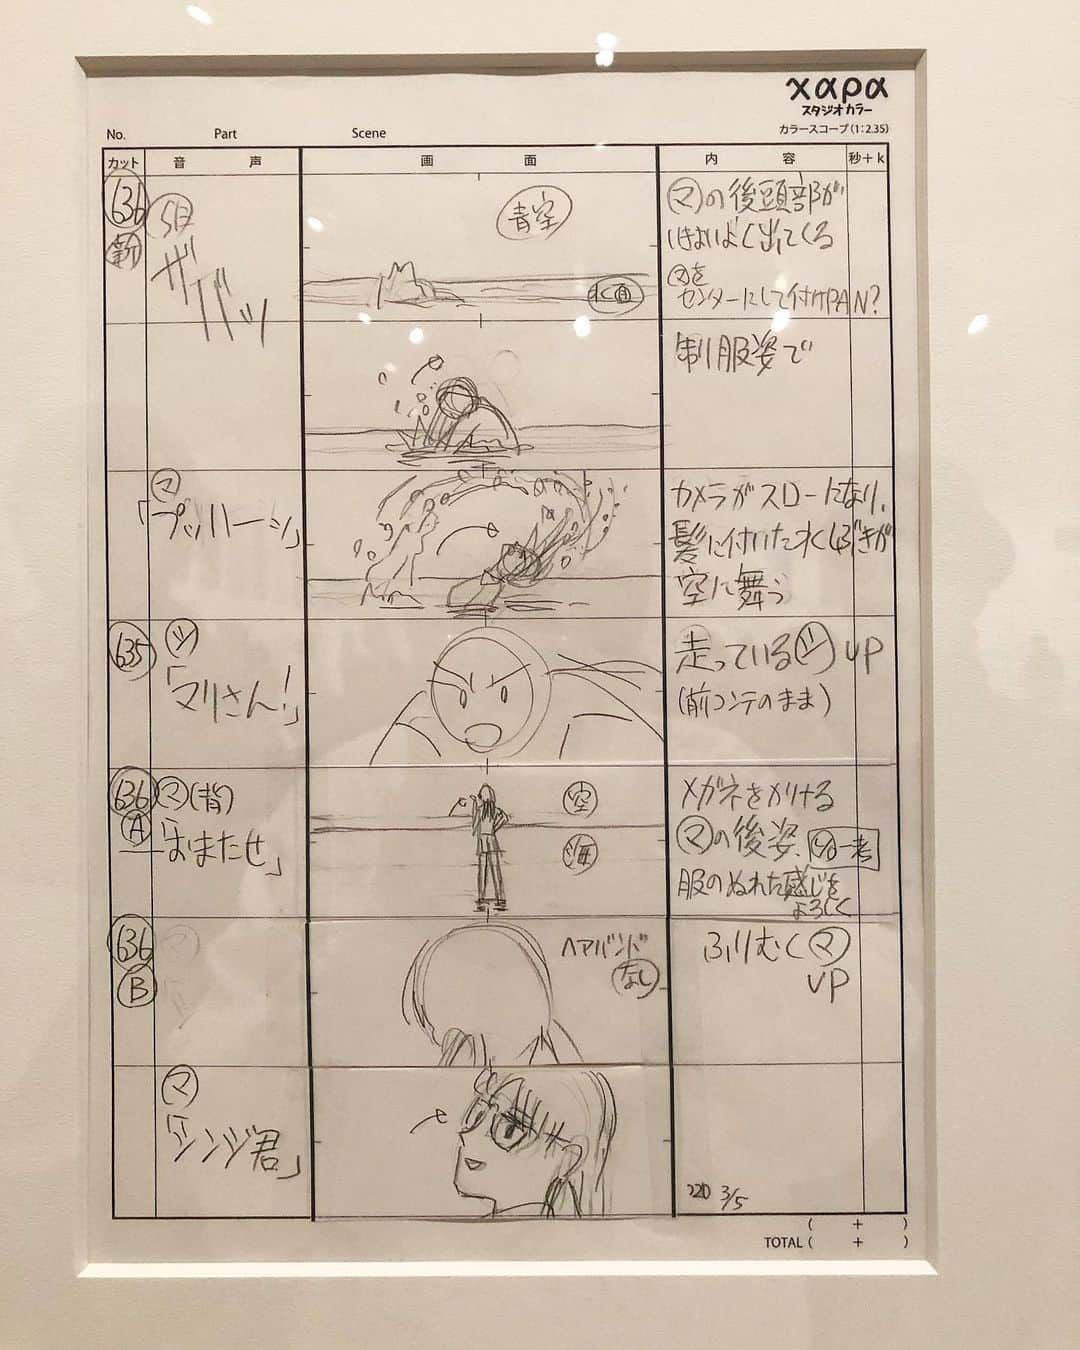 χαρα
スタジオカラー
カラースコープ(1:2.35)
No. Part Scene
カット 音 声 画 面 内 容 秒+k
636
新
ザバッ
青空
水面
マの後頭部が
いきおいよく出てくる
マを
センターにして付けPAN?
制服姿で
マ
「プッハーッ」
カメラがスローになり、
髪に付いた水しぶきが
空に舞う
635
シ
「マリさん!」
走っているシ UP
(前コンテのまま)
636
A
マ(背)
「おまたせ」
空
海
メガネをかける
マの後姿、
服のぬれた感じを
よろしく
636
B
ヘアバンド
なし
ふりむくマ
UP
マ
「シンジ君」
220 3/5
( + )
TOTAL ( + )